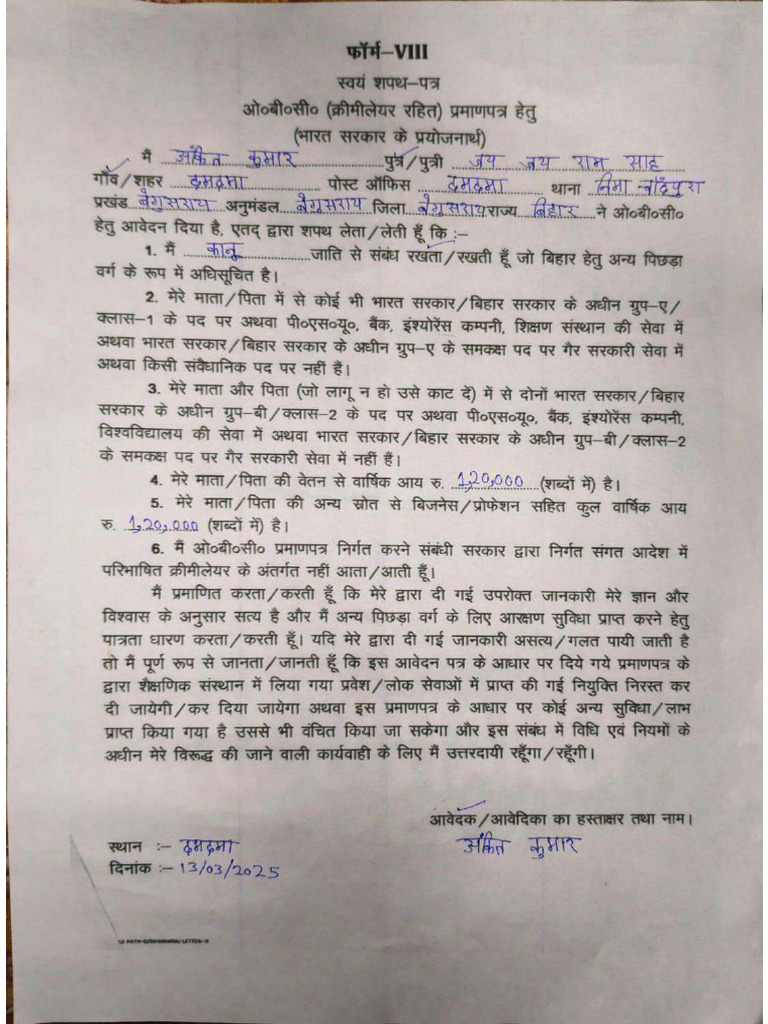 फॉर्म–VIII
स्वयं शपथ–पत्र
ओ०बी०सी० (क्रीमीलेयर रहित) प्रमाणपत्र हेतु
(भारत सरकार के प्रयोजनार्थ)
मैं अंकित कुमार पुत्र/पुत्री जय जय राम साह
गाँव/शहर दमदमा पोस्ट ऑफिस दमदमा थाना निमा चाँदपुरा
प्रखंड बेगुसराय अनुमंडल बेगुसराय जिला बेगुसराय राज्य बिहार ने ओ०बी०सी०
हेतु आवेदन दिया है, एतद् द्वारा शपथ लेता/लेती हूँ कि :–
1. मैं कानू जाति से संबंध रखता/रखती हूँ जो बिहार हेतु अन्य पिछड़ा
वर्ग के रूप में अधिसूचित है।
2. मेरे माता/पिता में से कोई भी भारत सरकार/बिहार सरकार के अधीन ग्रुप–ए/
क्लास–1 के पद पर अथवा पी०एस०यू०, बैंक, इंश्योरेंस कम्पनी, शिक्षण संस्थान की सेवा में
अथवा भारत सरकार/बिहार सरकार के अधीन ग्रुप–ए के समकक्ष पद पर गैर सरकारी सेवा में
अथवा किसी संवैधानिक पद पर नहीं हैं।
3. मेरे माता और पिता (जो लागू न हो उसे काट दें) में से दोनों भारत सरकार/बिहार
सरकार के अधीन ग्रुप–बी/क्लास–2 के पद पर अथवा पी०एस०यू०, बैंक, इंश्योरेंस कम्पनी,
विश्वविद्यालय की सेवा में अथवा भारत सरकार/बिहार सरकार के अधीन ग्रुप–बी/क्लास–2
के समकक्ष पद पर गैर सरकारी सेवा में नहीं हैं।
4. मेरे माता/पिता की वेतन से वार्षिक आय रु. 1,20,000 (शब्दों में) है।
5. मेरे माता/पिता की अन्य स्रोत से बिजनेस/प्रोफेशन सहित कुल वार्षिक आय
रु. 1,20,000 (शब्दों में) है।
6. मैं ओ०बी०सी० प्रमाणपत्र निर्गत करने संबंधी सरकार द्वारा निर्गत संगत आदेश में
परिभाषित क्रीमीलेयर के अंतर्गत नहीं आता/आती हूँ।
मैं प्रमाणित करता/करती हूँ कि मेरे द्वारा दी गई उपरोक्त जानकारी मेरे ज्ञान और
विश्वास के अनुसार सत्य है और मैं अन्य पिछड़ा वर्ग के लिए आरक्षण सुविधा प्राप्त करने हेतु
पात्रता धारण करता/करती हूँ। यदि मेरे द्वारा दी गई जानकारी असत्य/गलत पायी जाती है
तो मैं पूर्ण रूप से जानता/जानती हूँ कि इस आवेदन पत्र के आधार पर दिये गये प्रमाणपत्र के
द्वारा शैक्षणिक संस्थान में लिया गया प्रवेश/लोक सेवाओं में प्राप्त की गई नियुक्ति निरस्त कर
दी जायेगी/कर दिया जायेगा अथवा इस प्रमाणपत्र के आधार पर कोई अन्य सुविधा/लाभ
प्राप्त किया गया है उससे भी वंचित किया जा सकेगा और इस संबंध में विधि एवं नियमों के
अधीन मेरे विरूद्ध की जाने वाली कार्यवाही के लिए मैं उत्तरदायी रहूँगा/रहूँगी।
आवेदक/आवेदिका का हस्ताक्षर तथा नाम।
स्थान :– दमदमा
अंकित कुमार
दिनांक :– 13/03/2025